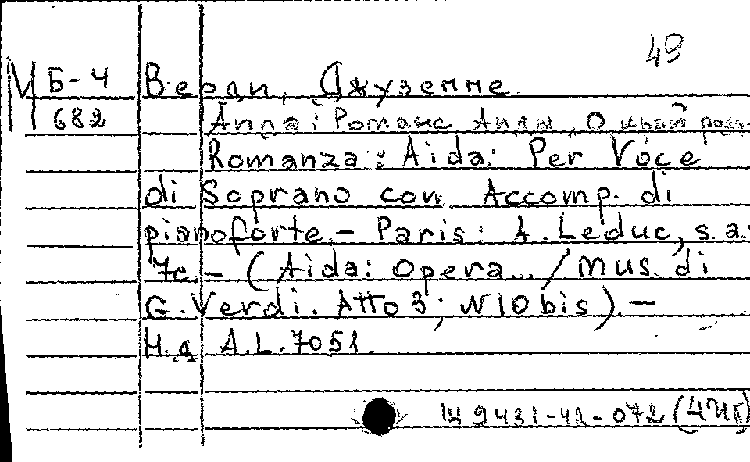 49
М Б-4 Верди, Джузеппе.
682 Аида: Романс Аиды, О край
Romanza: Aida: Per Voce
di Soprano con Accomp. di
pianoforte. – Paris: A. Leduc, s.a.
7c. – (Aida: Opera... / Mus. di
G. Verdi. Atto 3; N10 bis). –
Н.д. A.L.7051.
Ш 9431-42-072 (4